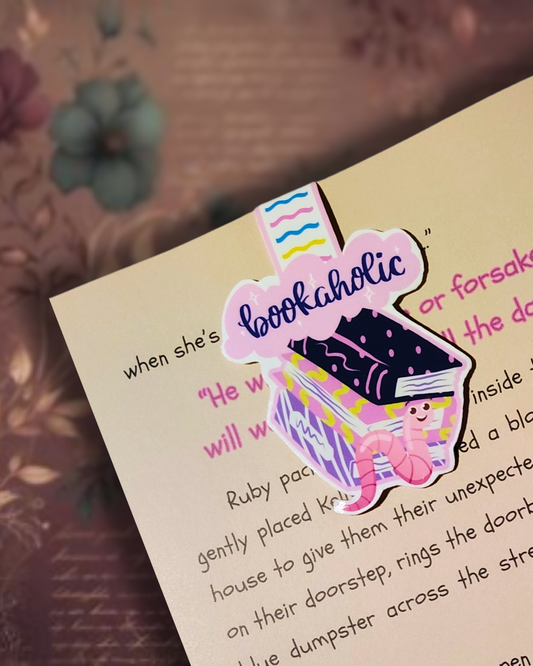 bookaholic
."
when she's
"He w or forsake
will w ll the da
inside t
Ruby pac ed a blo
gently placed Kel
house to give them their unexpecte
on their doorstep, rings the doorb
blue dumpster across the stre
pen